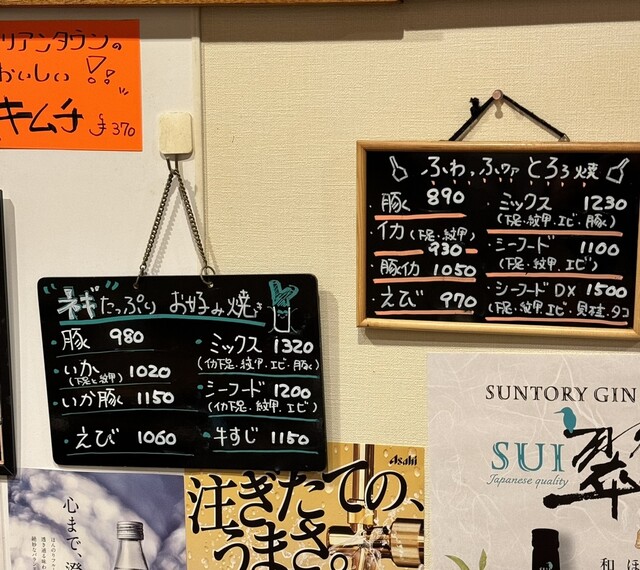 リアンタウンの
おいしい!!
キムチ ¥370
ふわっふわァ とろろ焼
・豚 890
・イカ(下足・紋甲)
930
・豚イカ 1050
・えび 970
・ミックス 1230
(下足・紋甲・エビ・豚)
・シーフード 1100
(下足・紋甲・エビ)
・シーフードDX 1500
(下足・紋甲・エビ・貝柱・タコ)
"ネギ"たっぷり お好み焼き
・豚 980
・いか 1020
(下足と紋甲)
・いか豚 1150
・えび 1060
・ミックス 1320
(イカ下足・紋甲・エビ・豚)
・シーフード 1200
(イカ下足・紋甲・エビ)
・牛すじ 1150
SUNTORY GIN
SUI 翠
Japanese quality
和
ほ
心まで、澄
Asahi
注ぎたての、
うまさ。